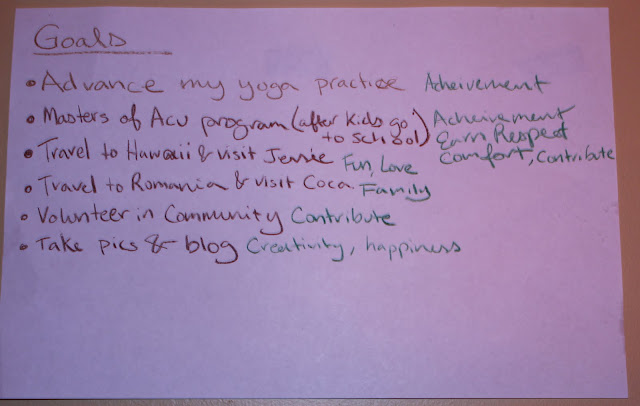 Goals
• Advance my yoga practice Acheivement
• Masters of Acu program (after kids go to school) Acheivement
Earn Respect
Comfort, Contribute
• Travel to Hawaii & visit Jennie Fun, Love
• Travel to Romania & visit Coca Family
• Volunteer in Community Contribute
• Take pics & blog Creativity, happiness